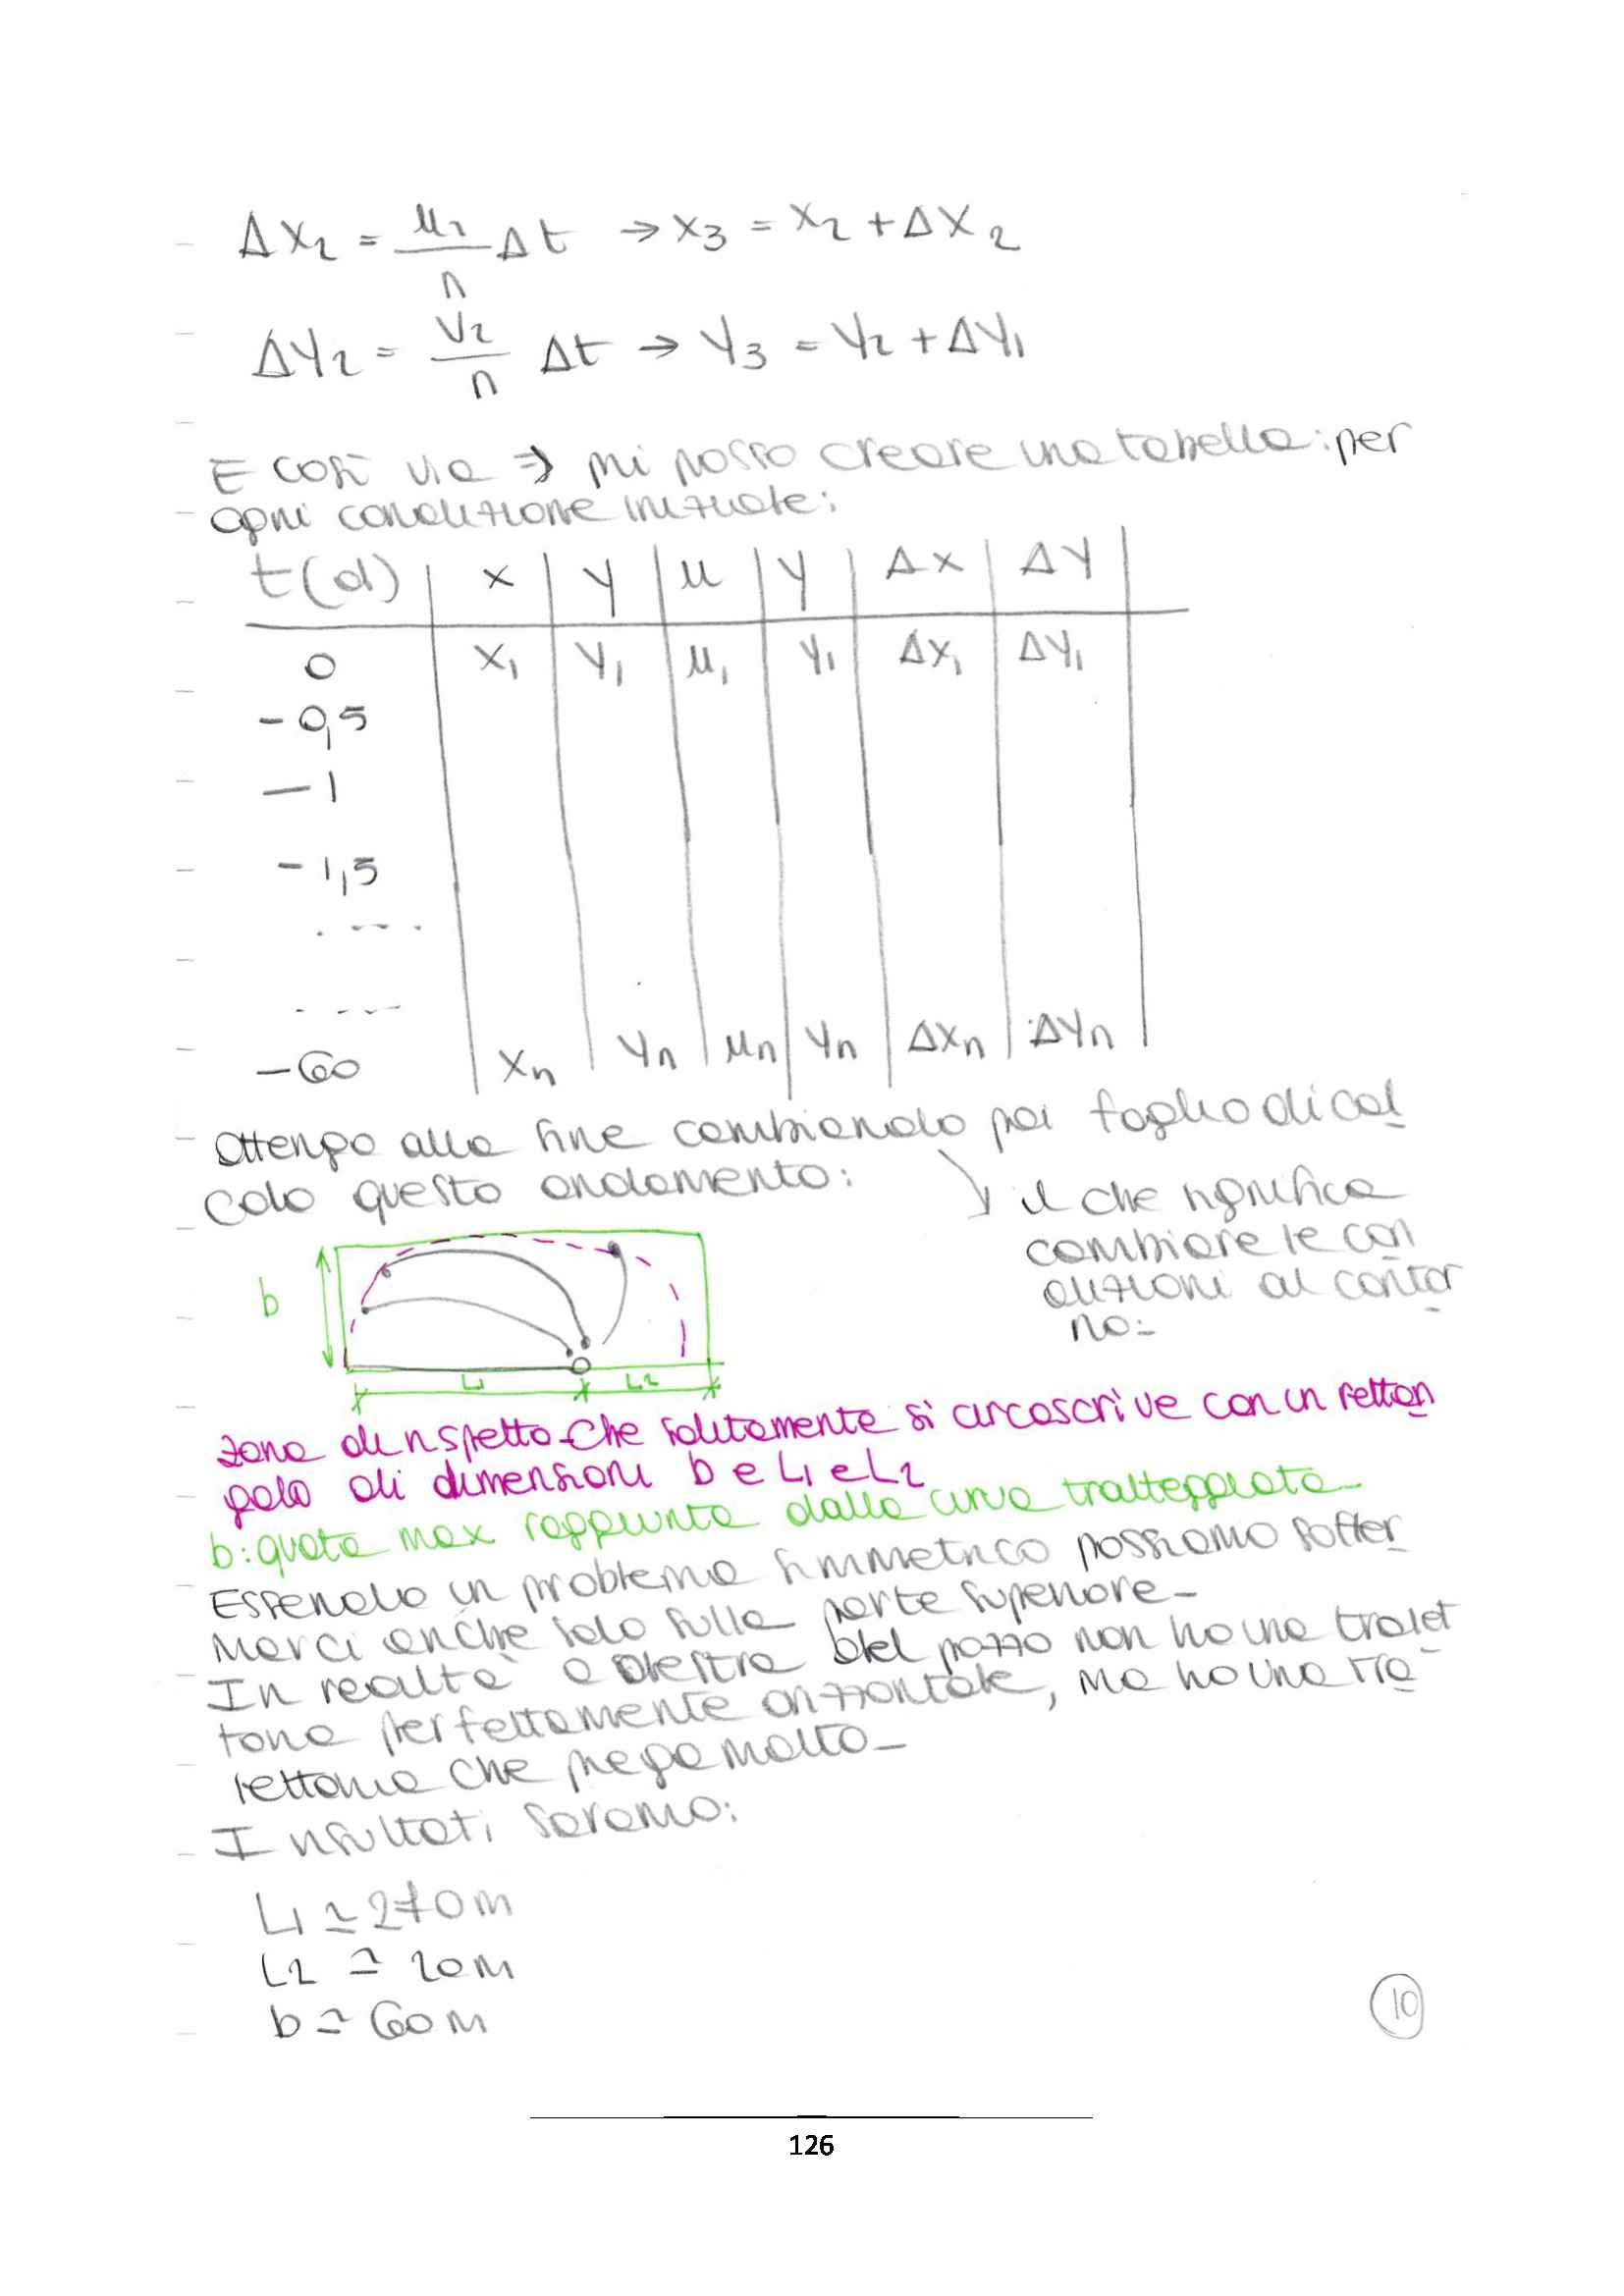 Δx₂ = u₂/n Δt → x₃ = x₂ + Δx₂
Δy₂ = v₂/n Δt → y₃ = y₂ + Δy₁
E così via ⇒ mi posso creare una tabella: per
ogni condizione iniziale:
t(d) | x | y | u | y | Δx | Δy
0 | x₁ | y₁ | u₁ | y₁ | Δx₁ | Δy₁
-0,5
-1
-1,5
.----.
.---
-60 | xₙ | yₙ | uₙ | yₙ | Δxₙ | Δyₙ
Ottengo alla fine cambiando poi foglio di cal
colo questo andamento:
↘ il che significa
cambiare le con
dizioni al contor
no:-
b
L1 L2
zona di rispetto che solitamente si circoscrive con un rettan
golo di dimensioni b e L1 e L2
b: quota max raggiunta dalla curva tratteggiata-
Essendo un problema simmetrico possiamo soffer
marci anche solo sulla parte superiore-
In realtà a destra del pozzo non ho una traiet
toria perfettamente orizzontale, ma ho una tra
iettoria che piega molto-
I risultati saranno:
L1 ≃ 270m
L2 ≃ 20m
b ≃ 60m
10
126